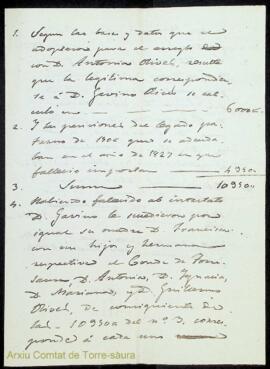 1. Segun las bases y datos que se
adoptaron para el arreglo
con D. Antonio Olives, resulta
que la legitima correspondien
te á D. Gavino Olives se cal
culó en 6000
2. Y las pensiones del legado pa
terno de que se adeuda
ban en el año de 1827 en que
falleció importan 4950
3. Suma 10950
4. Habiendo fallecido ab intestato
D. Gavino le sucedieron por
igual su madre D. Francisca
con sus hijos y hermanos
respective el Conde de Torre
Saura, D. Antonio, D. Ignacia,
D. Mariana, y D. Guillermo
Olives, de consiguiente de
las 10950 del n.º 3, corres
ponde á cada uno
Arxiu Comtat de Torre-saura